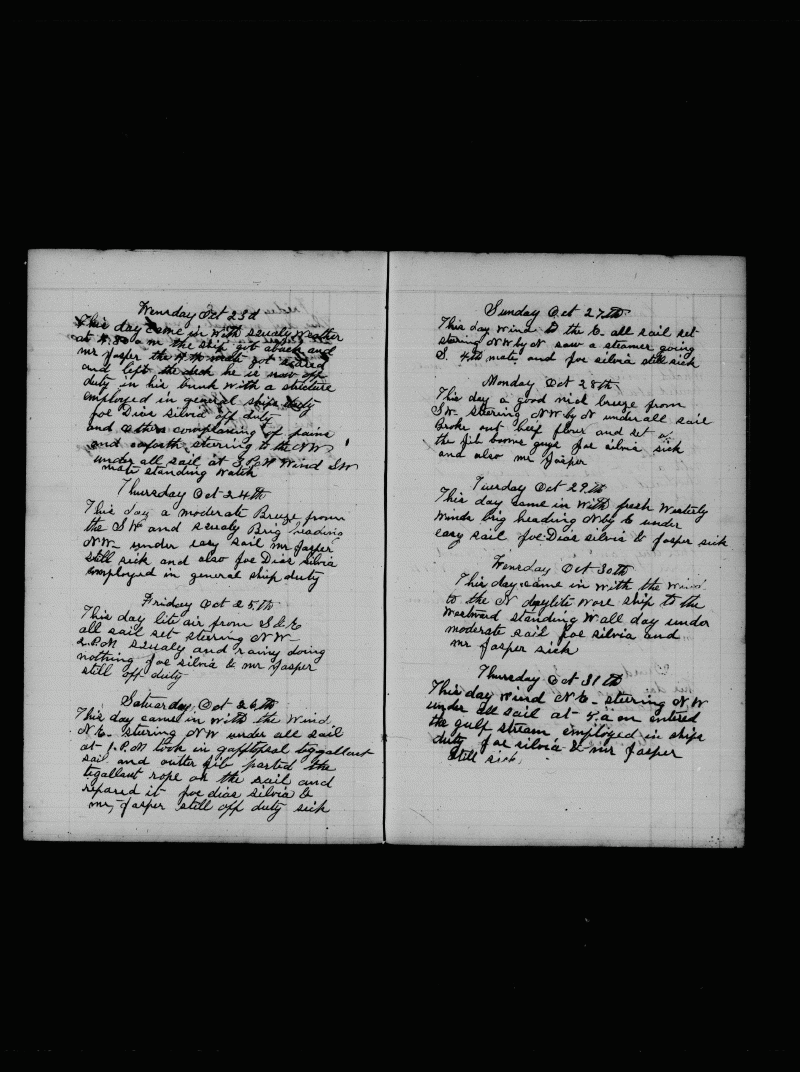 Wensday Oct 23d
This day came in with squaly weather
at 4.30 a m the ship got aback and
mr Jasper the 4.th mate got scared
and left the deck he is now off
duty in his bunk with a stricture
employed in general ships duty
Joe Dias Silvia off duty
and others complaining of pains
and soforth steering to the NW
under all sail at 3 P.M Wind SW
mate standing watch
Thursday Oct 24th
This day a moderate Breeze from
the SW and squaly Brig heading
NW- under easy sail mr Jasper
still sick and also Joe Dias Silvia
employed in general ship duty
Friday Oct 25th
This day lite air from S.b.E
all sail set steering NW-
2.P.M squaly and rainy doing
nothing Joe silvia & mr Jasper
still off duty
Saturday Oct 26th
This day came in with the Wind
N.E- stering NW under all sail
at- 1.P.M took in gafftopsal teggallant
sail and outter jib parted the
tegallant rope on the sail and
repared it Joe dias silvia &
mr, Jasper still off duty sick
Sunday Oct 27th
This day wind to the E- all sail set
stering NW by N saw a steamer going
S. 4th mate and Joe silvia still sick
Monday Oct 28th
This day a good nice breeze from
SW. sterring NW by N under all sail
Broke out beef flour and set a
the jib boome guys Joe silvia sick
and also mr Jasper
Tuesday Oct 29th
This day came in with fresh Westerly
Winds brig heading N by E under
easy sail Joe Dias silvia & Jasper sick
Wensday Oct 30th
This day came in with the Wind
to the N daylite wore ship to the
Westward standing W all day under
moderate sail Joe silvia and
mr Jasper sick
Thursday Oct 31th
This day wind N.E- steering N.W
under all sail at- 4.a m entered
the gulf stream employed in ships
duty Joe silvia & mr Jasper
still sick